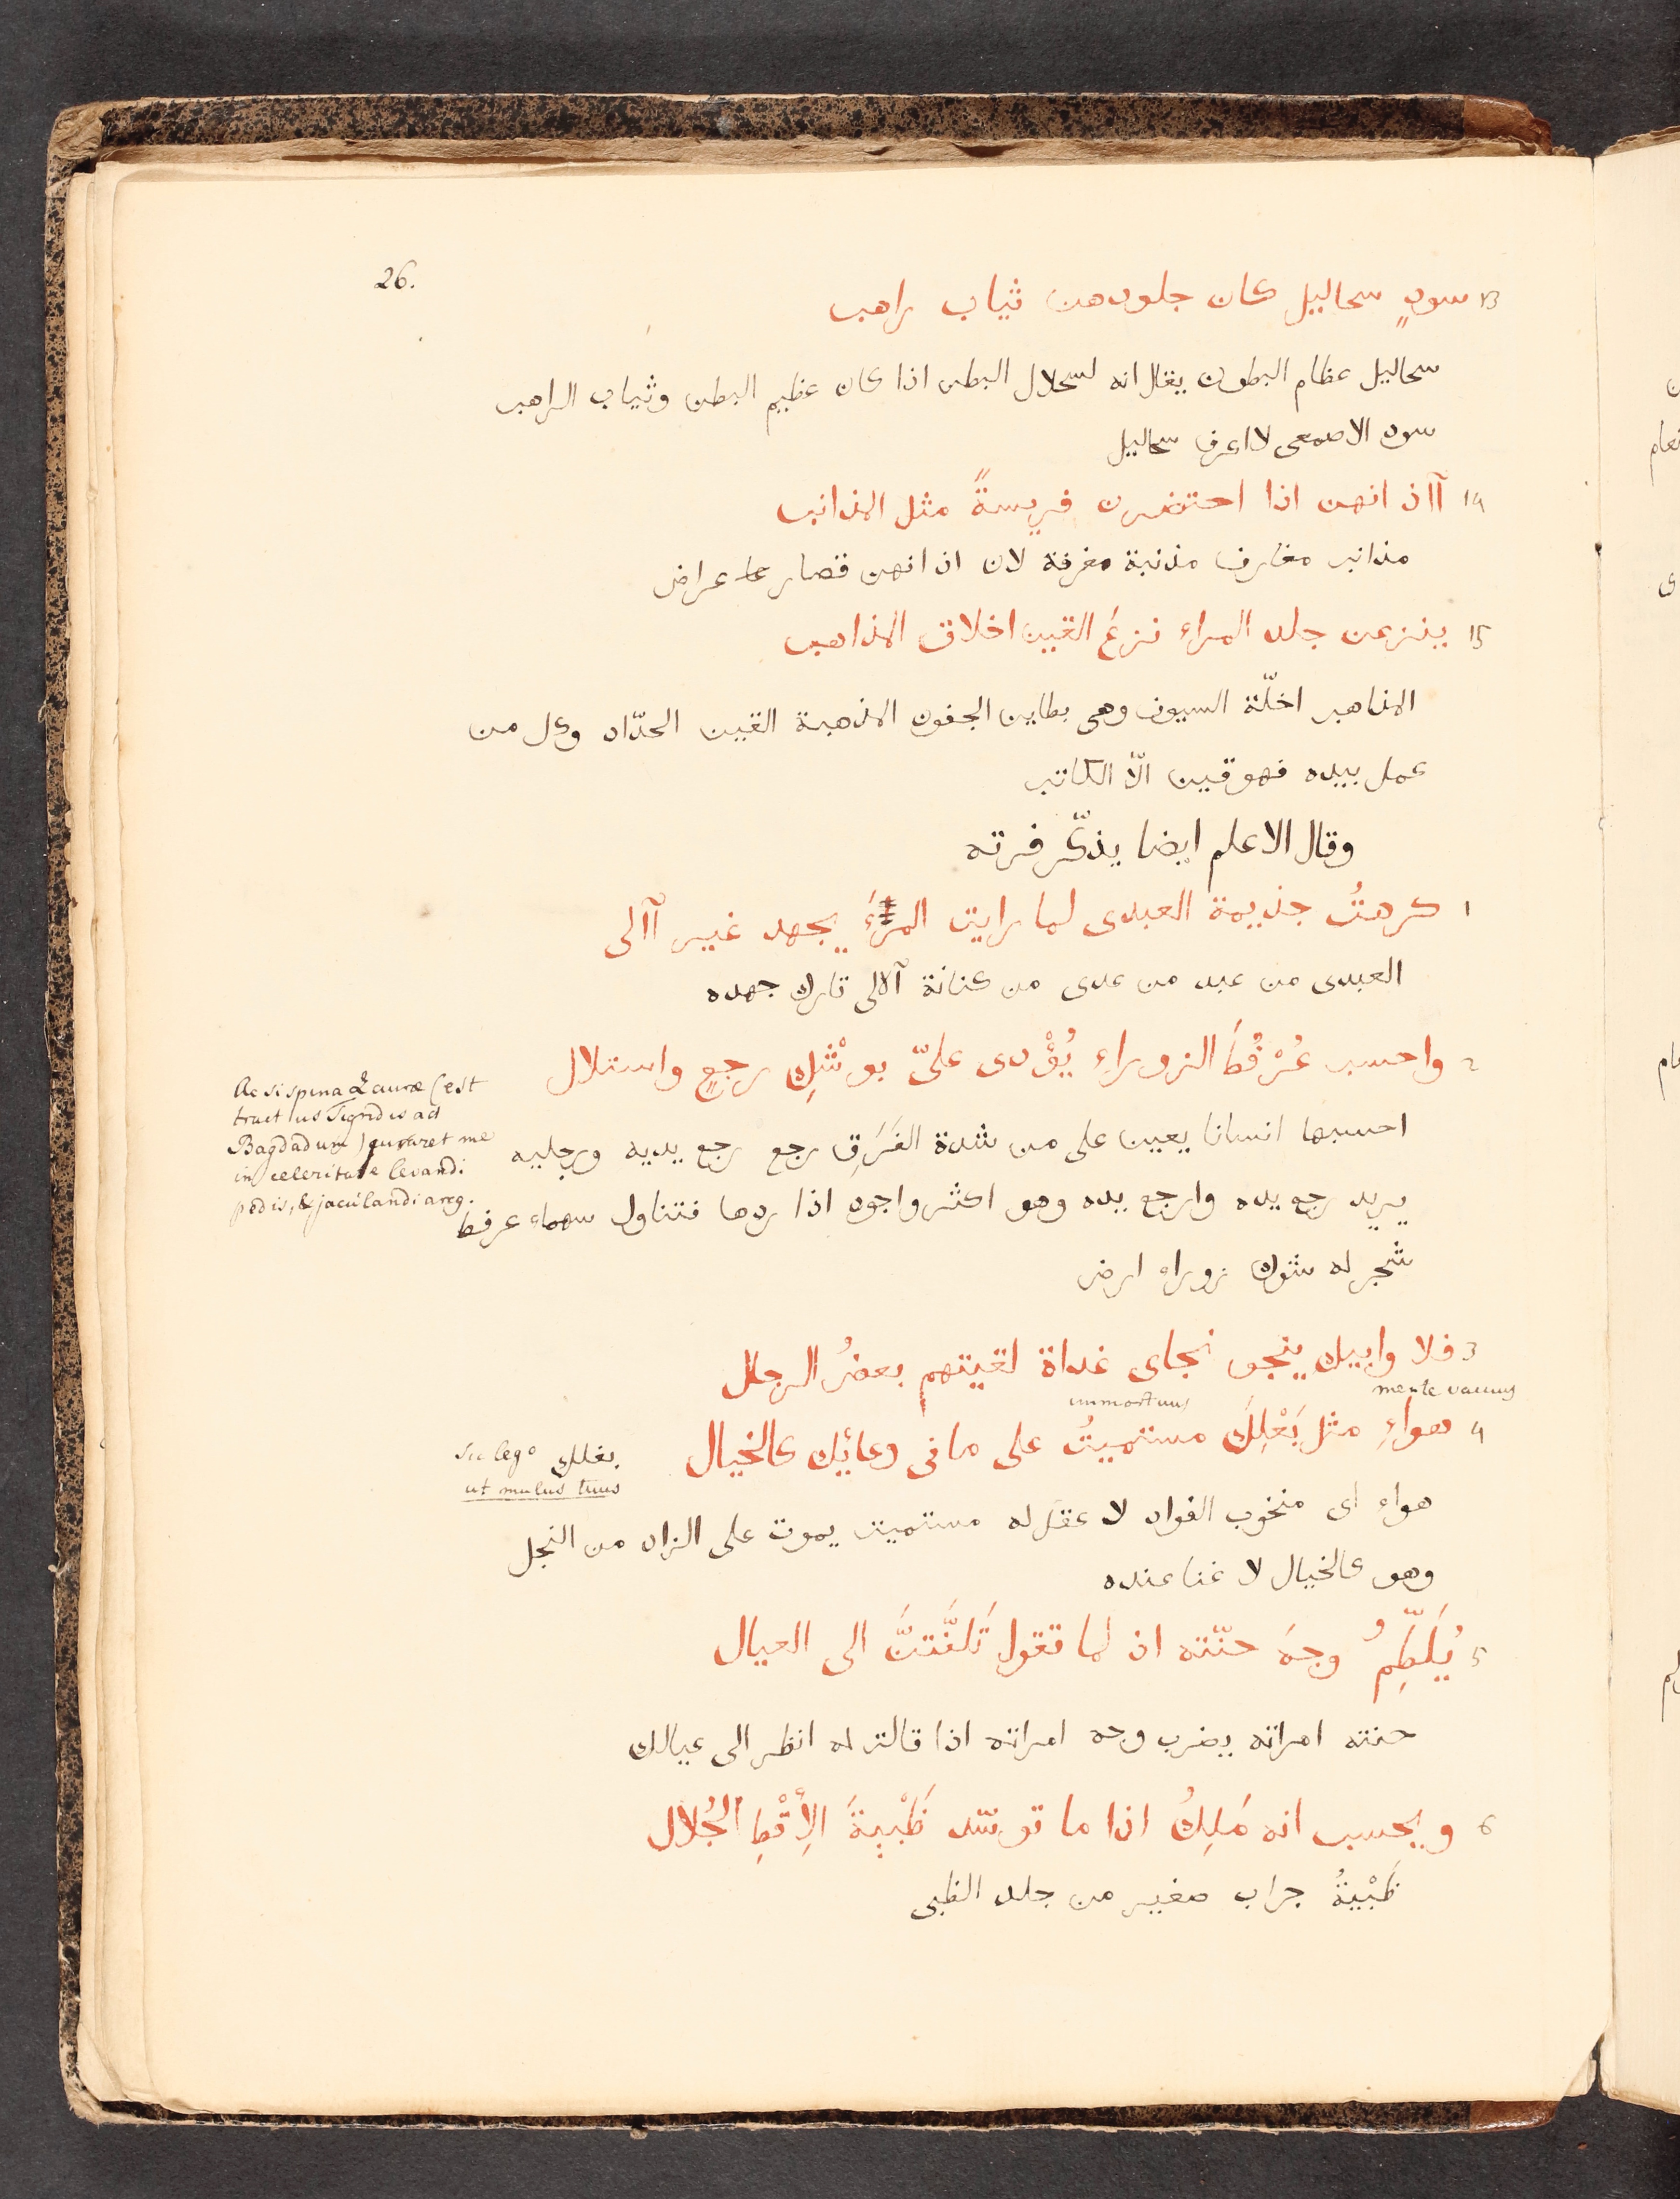 26.
13 سودٍ سحاليل كان جلودهن ثياب راهب
سحاليل عظام البطون يقال انه لسحلال البطن اذا كان عظيم البطن وثياب الراهب
سود الاصمعى لا اعرف سحاليل
14 آاذانهن اذا احتضرن فريسةً مثل المذانب
مذانب مغارف مذنبة مغرفة لان اذانهن قصار عراض
15 ينزعن جلد المراء نزعَ القين اخلاق المذاهب
المذاهب اخلّة السيوف وهى بطاين الجفون المذهبة القين الحدّاد وكل من
عمل بيده فهو قين الّا الكاتب
وقال الاعلم ايضا يذكّر فرته
1 كرهتُ جذيمة العبدى لما رايت المرءَ يجهد غير آالى
العبدى من عبد من عدى من كنانة آلالى تارك جهده
2 واحسب عُرْفُطَ الزوراءِ يُؤْدى علىّ بوشْكِ رجعٍ واستلال
Ac si spina Zauræ (est
tractus Tigridis ad
Bagdadum) juvaret me
in celeritate levandi
pedis, & jaculandi arcg.
احسبها انسانا يعين على من شدة الفَرَقِ رجع رجع يديه ورجليه
يريد رجع يده وارجع يده وهو اكثر واجود اذا ردها فتناول سهما عرفط
شجر له شوك زوراء ارض
3 فلا وابيك ينجو نجاى غداة لقيتهم بعضُ الرجال
mente vacuus
immortuus
4 هواءِ مثل بَعْلِكَ مستميتُ على ما فى وعائك كالخيال
بغلك sic lego
ut mulus tuus
هواء اى منخوب الفواد لا عقل له مستميت يموت على الزاد من النجل
وهو كالخيال لا غنا عنده
5 يُلَطِّمُ وجهَ حنّته اذ لما تقول تَلَفَّتَنَّ الى العيال
حنته امراته يضرب وجه امراته اذا قالت له انظر الى عيالك
6 ويحسب انه مَلِكُ اذا ما توسّد ظَبْيةَ الأَقْطِ الجُلال
ظَبْيةُ جراب صغير من جلد الظبى